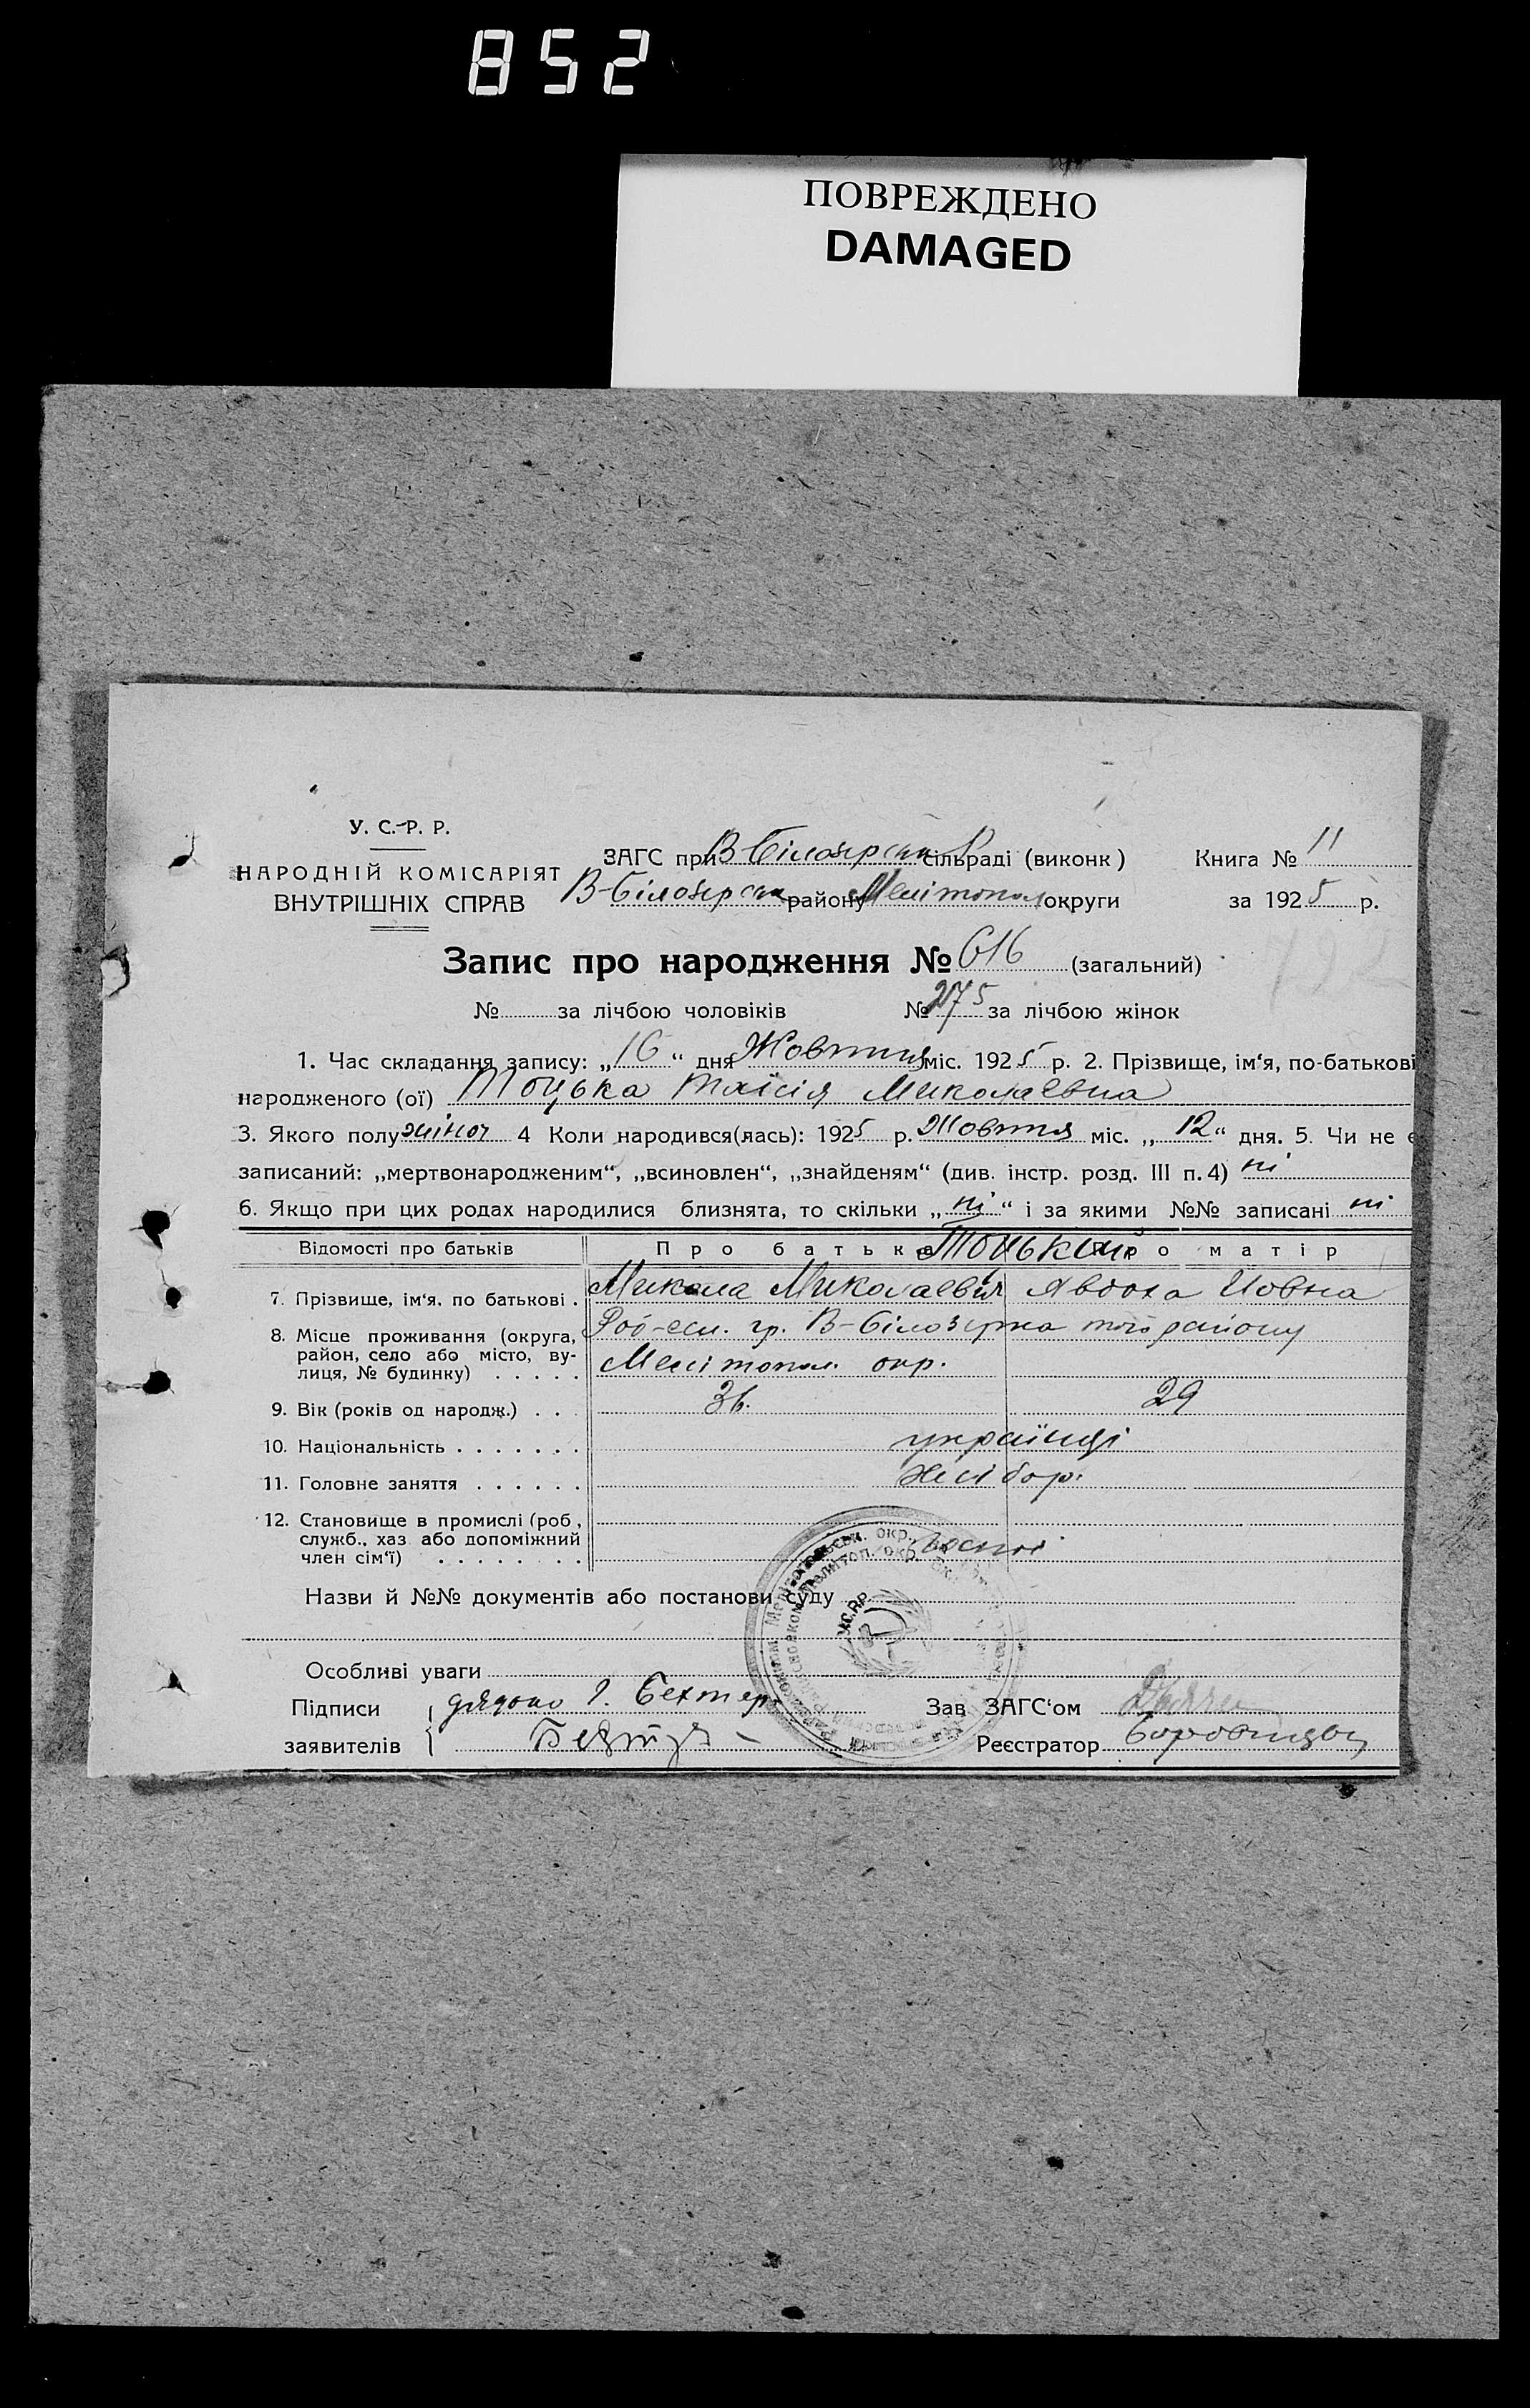 852
ПОВРЕЖДЕНО
DAMAGED
У. С.-Р. Р.
НАРОДНІЙ КОМІСАРІЯТ
ВНУТРІШНІХ СПРАВ
ЗАГС при В-Білозерськ сільраді (виконк) Книга № 11
В-Білозерськ району Мелітопол округи за 1925 р.
Запис про народження № 616 (загальний)
№ за лічбою чоловіків № 275 за лічбою жінок
1. Час складання запису: „16“ дня Жовтня міс. 1925 р. 2. Прізвище, ім‘я, по-батькові
народженого (ої) Тоцька Таїсія Миколаевна
3. Якого полу жіноч 4 Коли народився(лась): 1925 р. Жовтня міс. „12“ дня. 5. Чи не є
записаний: „мертвонародженим“, „всиновлен“, „знайденям“ (див. інстр. розд. III п. 4) ні
6. Якщо при цих родах народилися близнята, то скільки „ні“ і за якими №№ записані ні
Відомості про батьків Про батька Тоцький Про матір
7. Прізвище, ім‘я, по батькові . Микола Миколаевич Явдоха Йовна
8. Місце проживання (округа, район, село або місто, вулиця, № будинку) . . . . . гр. В-Білозерка того району
Мелітопол. окр.
9. Вік (років од народж.) . . . 36. 29
10. Національність . . . . . . . українці
11. Головне заняття . . . . . . хлібор.
12. Становище в промислі (роб, служб., хаз або допоміжний член сім‘ї) . . . . . . . .
Назви й №№ документів або постанови суду
У.С.Р.Р.
Особливі уваги
Підписи заявителів
Зав ЗАГС‘ом
Реєстратор